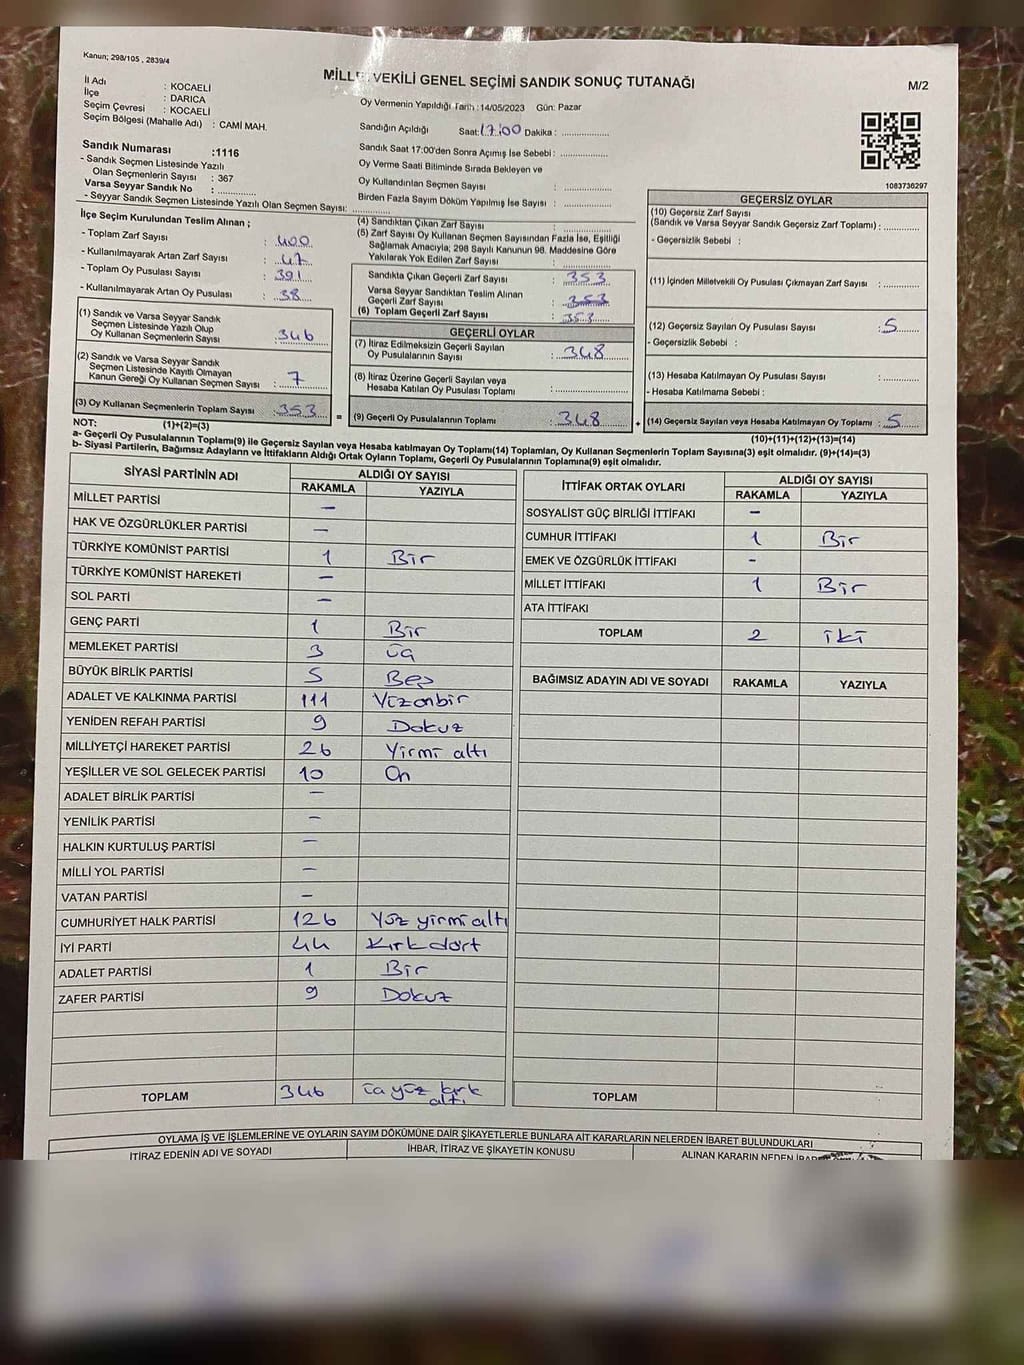 Kanun; 298/105 , 2839/4
MİLLETVEKİLİ GENEL SEÇİMİ SANDIK SONUÇ TUTANAĞI
M/2
İl Adı : KOCAELİ
İlçe : DARICA
Seçim Çevresi : KOCAELİ
Seçim Bölgesi (Mahalle Adı) : CAMİ MAH.
Sandık Numarası :1116
- Sandık Seçmen Listesinde Yazılı
Olan Seçmenlerin Sayısı : 367
Varsa Seyyar Sandık No : ..............
- Seyyar Sandık Seçmen Listesinde Yazılı Olan Seçmen Sayısı: ..............
Oy Vermenin Yapıldığı Tarih :14/05/2023 Gün: Pazar
Sandığın Açıldığı Saat:17:00 Dakika : ..............
Sandık Saat 17:00'den Sonra Açımış İse Sebebi : ..............
Oy Verme Saati Bitiminde Sırada Bekleyen ve
Oy Kullandırılan Seçmen Sayısı : ..............
Birden Fazla Sayım Döküm Yapılmış İse Sayısı : ..............
1083736297
İlçe Seçim Kurulundan Teslim Alınan ;
- Toplam Zarf Sayısı : 400
- Kullanılmayarak Artan Zarf Sayısı : 47
- Toplam Oy Pusulası Sayısı : 391
- Kullanılmayarak Artan Oy Pusulası : 38
(1) Sandık ve Varsa Seyyar Sandık
Seçmen Listesinde Yazılı Olup
Oy Kullanan Seçmenlerin Sayısı : 346
(2) Sandık ve Varsa Seyyar Sandık
Seçmen Listesinde Kayıtlı Olmayan
Kanun Gereği Oy Kullanan Seçmen Sayısı : 7
(3) Oy Kullanan Seçmenlerin Toplam Sayısı : 353
(1)+(2)=(3)
(4) Sandıktan Çıkan Zarf Sayısı : ..............
(5) Zarf Sayısı Oy Kullanan Seçmen Sayısından Fazla İse, Eşitliği
Sağlamak Amacıyla; 298 Sayılı Kanunun 98. Maddesine Göre
Yakılarak Yok Edilen Zarf Sayısı : ..............
Sandıkta Çıkan Geçerli Zarf Sayısı : 353
Varsa Seyyar Sandıktan Teslim Alınan
Geçerli Zarf Sayısı : 353
(6) Toplam Geçerli Zarf Sayısı : 353
GEÇERLİ OYLAR
(7) İtiraz Edilmeksizin Geçerli Sayılan
Oy Pusulalarının Sayısı : 348
(8) İtiraz Üzerine Geçerli Sayılan veya
Hesaba Katılan Oy Pusulası Toplamı : ..............
= (9) Geçerli Oy Pusulalarının Toplamı : 348 +
GEÇERSİZ OYLAR
(10) Geçersiz Zarf Sayısı
(Sandık ve Varsa Seyyar Sandık Geçersiz Zarf Toplamı) : ..............
- Geçersizlik Sebebi :
(11) İçinden Milletvekili Oy Pusulası Çıkmayan Zarf Sayısı : ..............
(12) Geçersiz Sayılan Oy Pusulası Sayısı : 5
- Geçersizlik Sebebi :
(13) Hesaba Katılmayan Oy Pusulası Sayısı : ..............
- Hesaba Katılmama Sebebi :
(14) Geçersiz Sayılan veya Hesaba Katılmayan Oy Toplamı : 5
(10)+(11)+(12)+(13)=(14)
NOT:
a- Geçerli Oy Pusulalarının Toplamı(9) ile Geçersiz Sayılan veya Hesaba katılmayan Oy Toplamı(14) Toplamları, Oy Kullanan Seçmenlerin Toplam Sayısına(3) eşit olmalıdır. (9)+(14)=(3)
b- Siyasi Partilerin, Bağımsız Adayların ve İttifakların Aldığı Ortak Oyların Toplamı, Geçerli Oy Pusulalarının Toplamına(9) eşit olmalıdır.
SİYASİ PARTİNİN ADI ALDIĞI OY SAYISI
RAKAMLA YAZIYLA
MİLLET PARTİSİ –
HAK VE ÖZGÜRLÜKLER PARTİSİ –
TÜRKİYE KOMÜNİST PARTİSİ 1 Bir
TÜRKİYE KOMÜNİST HAREKETİ –
SOL PARTİ –
GENÇ PARTİ 1 Bir
MEMLEKET PARTİSİ 3 Üç
BÜYÜK BİRLİK PARTİSİ 5 Beş
ADALET VE KALKINMA PARTİSİ 111 Yüzonbir
YENİDEN REFAH PARTİSİ 9 Dokuz
MİLLİYETÇİ HAREKET PARTİSİ 26 Yirmi altı
YEŞİLLER VE SOL GELECEK PARTİSİ 10 On
ADALET BİRLİK PARTİSİ –
YENİLİK PARTİSİ –
HALKIN KURTULUŞ PARTİSİ –
MİLLİ YOL PARTİSİ –
VATAN PARTİSİ –
CUMHURİYET HALK PARTİSİ 126 Yüz yirmi altı
İYİ PARTİ 44 Kırk dört
ADALET PARTİSİ 1 Bir
ZAFER PARTİSİ 9 Dokuz
TOPLAM 346 üçyüz kırk
altı
İTTİFAK ORTAK OYLARI ALDIĞI OY SAYISI
RAKAMLA YAZIYLA
SOSYALİST GÜÇ BİRLİĞİ İTTİFAKI –
CUMHUR İTTİFAKI 1 Bir
EMEK VE ÖZGÜRLÜK İTTİFAKI –
MİLLET İTTİFAKI 1 Bir
ATA İTTİFAKI
TOPLAM 2 İki
BAĞIMSIZ ADAYIN ADI VE SOYADI RAKAMLA YAZIYLA
TOPLAM
OYLAMA İŞ VE İŞLEMLERİNE VE OYLARIN SAYIM DÖKÜMÜNE DAİR ŞİKAYETLERLE BUNLARA AİT KARARLARIN NELERDEN İBARET BULUNDUKLARI
İTİRAZ EDENİN ADI VE SOYADI İHBAR, İTİRAZ VE ŞİKAYETİN KONUSU ALINAN KARARIN NEDEN